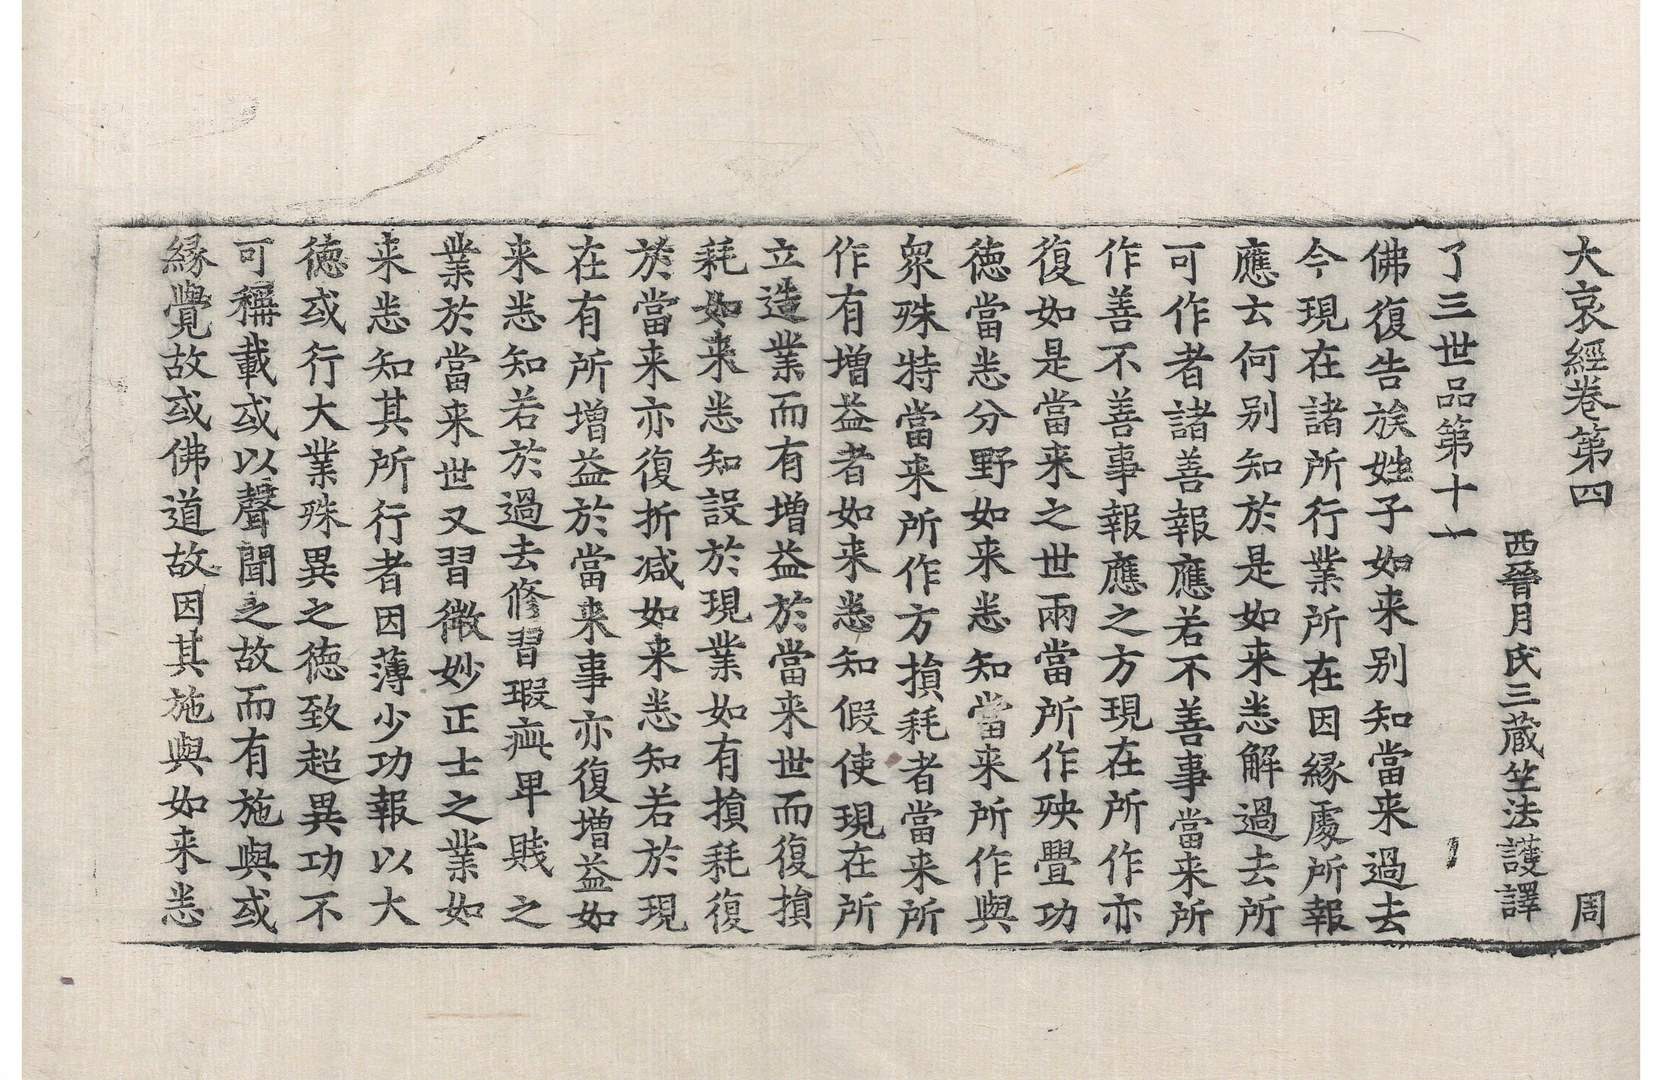 大哀經卷第四 周
西晉月氏三藏竺法護譯
了三世品第十一
佛復告族姓子如来别知當来過去
今現在諸所行業所在因緣處所報
應云何别知於是如来悉解過去所
可作者諸善報應若不善事當来所
作善不善事報應之方現在所作亦
復如是當来之世兩當所作殃舋功
徳當悉分野如来悉知當来所作與
衆殊特當来所作方損耗者當来所
作有增益者如来悉知假使現在所
立造業而有增益於當来世而復損
耗如来悉知設於現業如有損耗復
於當来亦復折减如来悉知若於現
在有所增益於當来事亦復增益如
来悉知若於過去修習瑕疵卑賤之
業於當来世又習微妙正士之業如
来悉知其所行者因薄少功報以大
徳或行大業殊異之徳致超異功不
可稱載或以聲聞之故而有施與或
緣覺故或佛道故因其施與如来悉